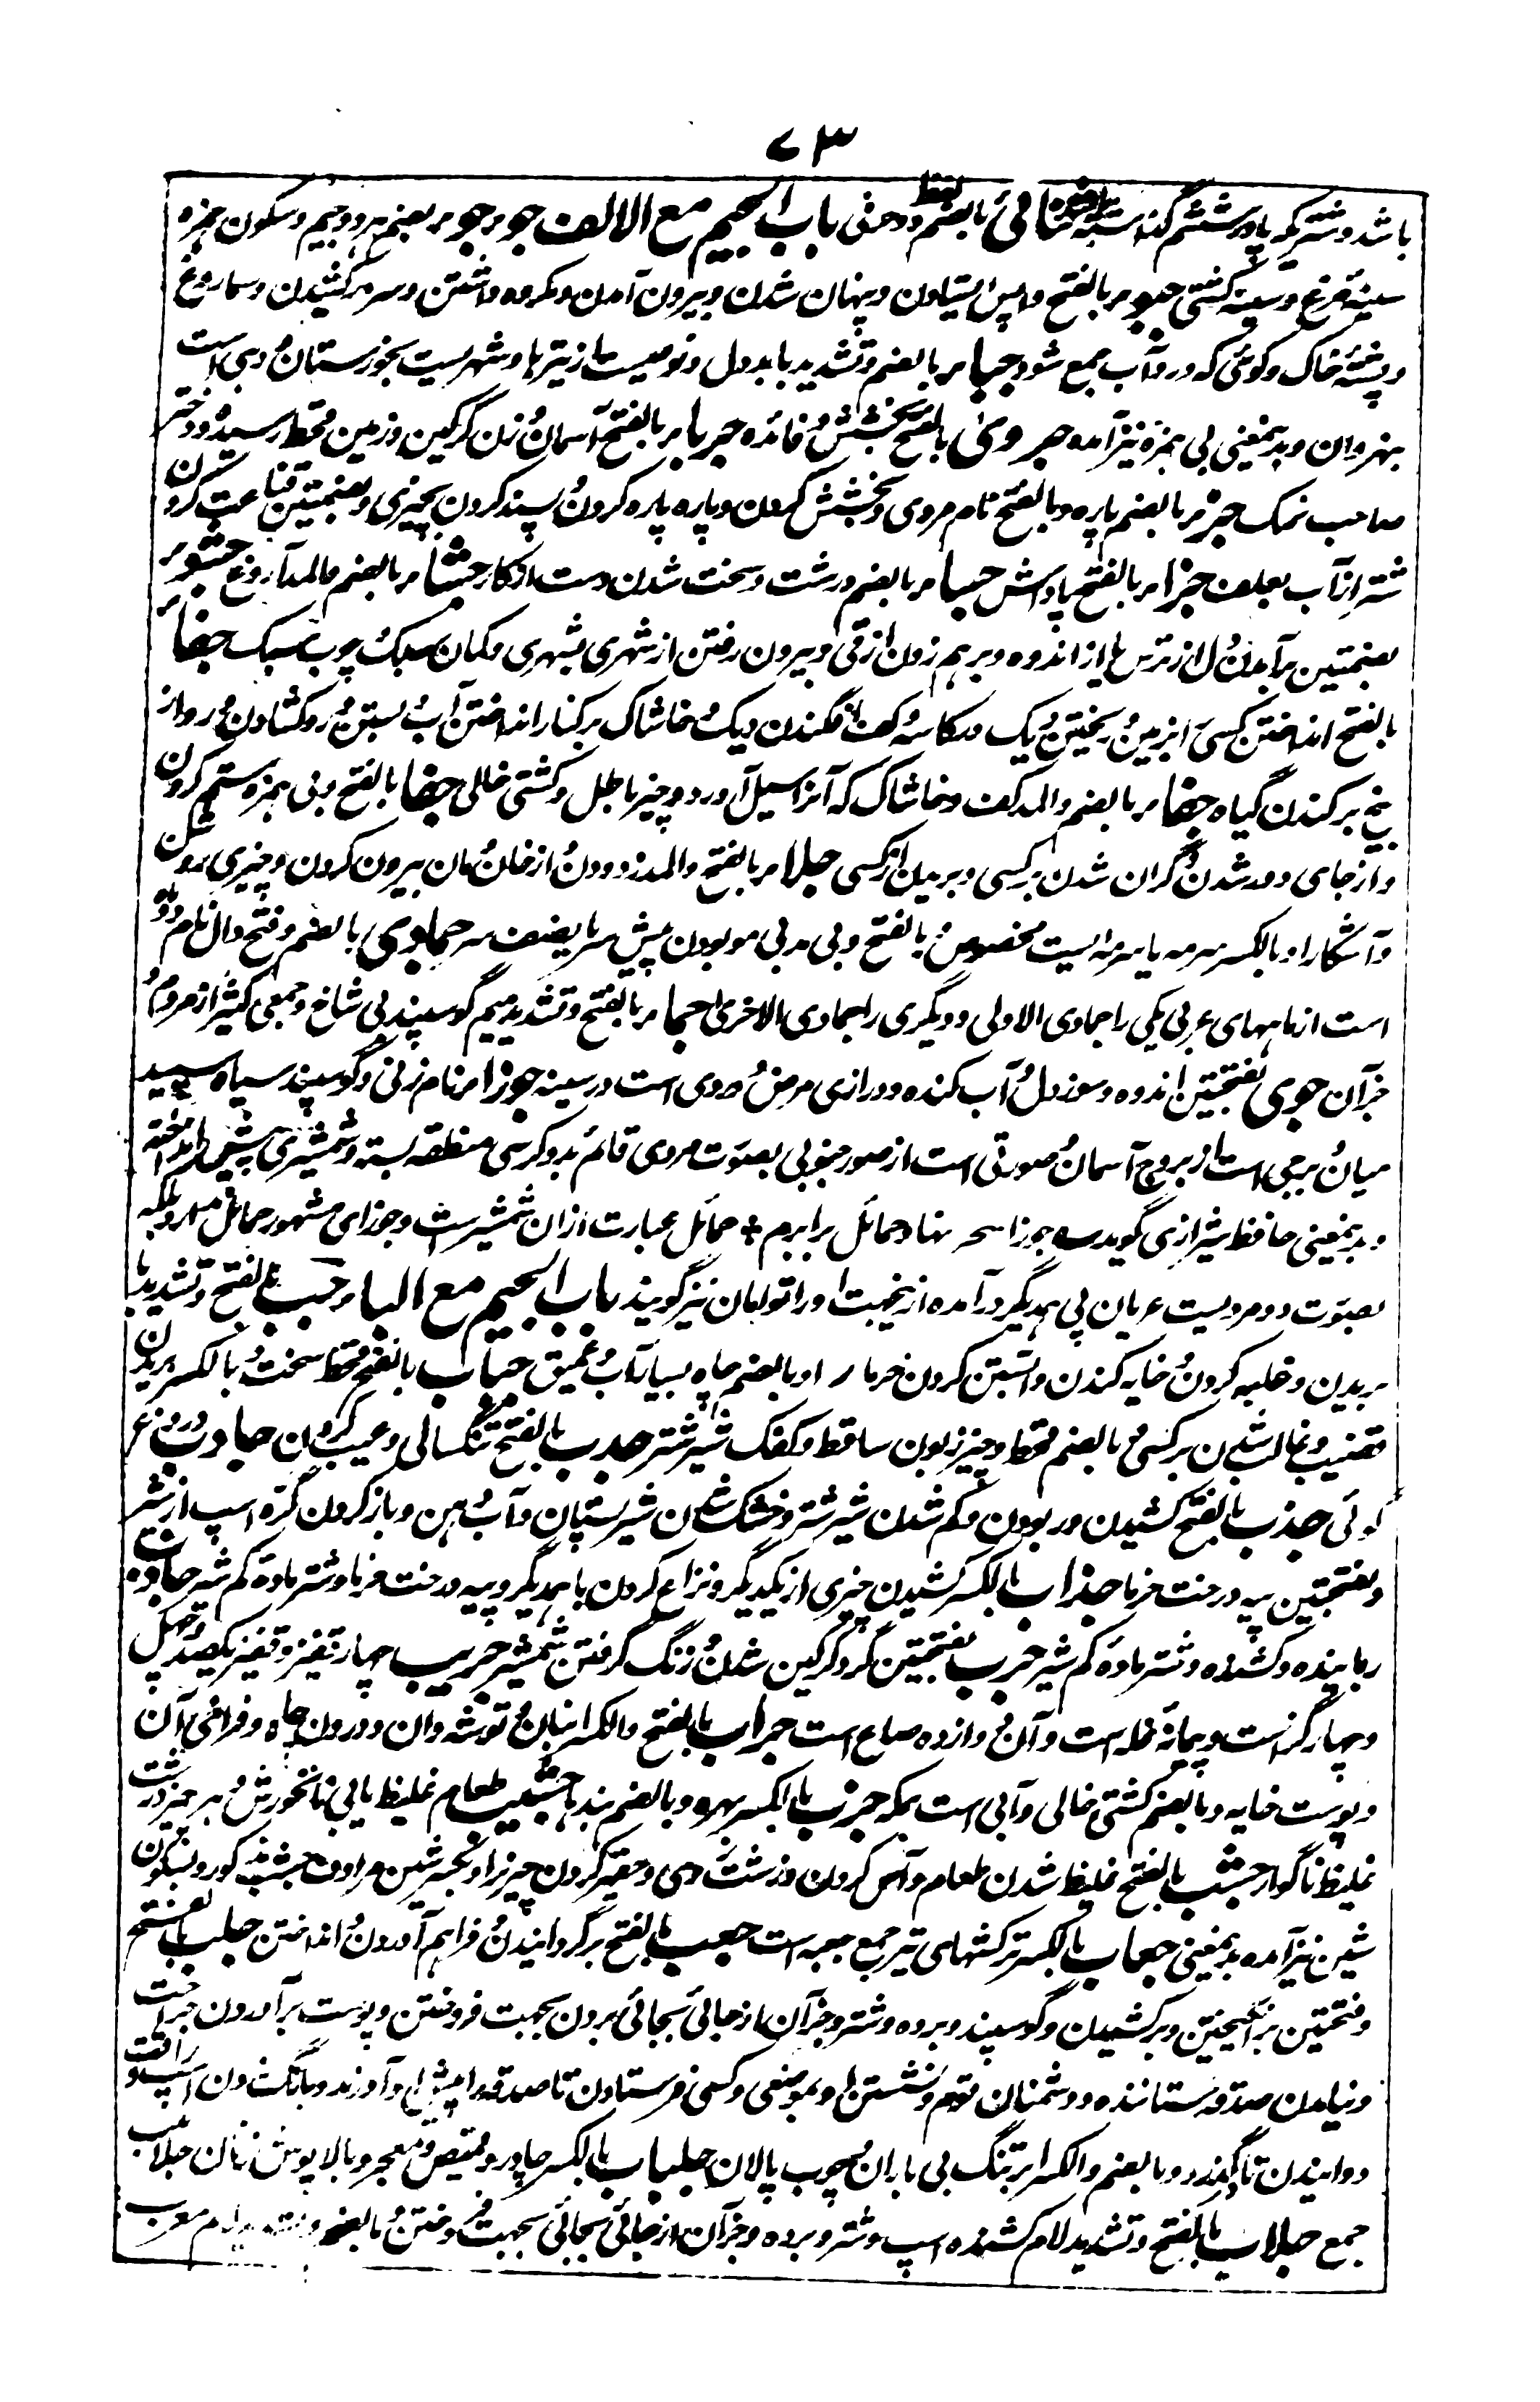 ۷۳
باشد و شتریکه پا در ششم گذاشته ثنائی بالضم و دحثی باب الجیم مع الالف جوجوء بضم هر دو جیم و سکون همزه
سینه مرغ و سینه کشتی جبوء بالفتح واپس ایستادن و پنهان شدن و بیرون آمدن و مکروه داشتن و سر بر کشیدن و سماروغ
و پشته خاک و گوئی که درو آب جمع شود جباء بالضم و تشدید با بددل و نوعیست از تیرها و شهریست بخوزستان و دهی است
بنهروان و بدینمعنی بی همزه نیز آمده جدوی بالفتح بخشش و فائده جرباء بالفتح آسمان و زن گرگین و زمین قحط رسیده و دختر
صاحب نمک جزء بالضم پاره و بالفتح نام مردی و بخشش کردن و پاره پاره کردن و بسند کردن بچیزی و بضمتین قناعت کردن
شتر از آب بعلف جزاء بالفتح پاداش جساء بالضم درشت و سخت شدن دست از کار جشاء بالضم والمد آروغ جشوء
بضمتین برآمدن دل از ترس یا از اندوه و برهم زدن از قی و بیرون رفتن از شهری بشهری و کمان سبک و چوب سبک جفاء
بالفتح انداختن کسی را بزمین و ریختن دیک و کاسه و کف افگندن دیک و خاشاک بر کنار انداختن آب و بستن در و کشادن در و از
بیخ برکندن گیاه جفاء بالضم والمد کف و خاشاک که آنرا سیل آورد و چیز باطل و کشتی خالی جفا بالفتح و بی همزه ستم کردن
و از جای دور شدن و گران شدن بر کسی و بریدن از کسی جلاء بالفتح والمد زدودن و از خان و مان بیرون کردن و چیزی روشن
و آشکارا و بالکسر سرمه یا سرمه ایست مخصوص و بالفتح و بی مد بی مو بودن پیش سر یا نصف سر جمادی بالضم و فتح دال نام دو
است از ماههای عربی یکی را جمادی الاولی و دیگری را جمادی الاخری جماء بالفتح و تشدید میم گوسپند بی شاخ و جمعی کثیر از مردم و
جز آن جوی بفتحتین اندوه و سوز دل و آب گنده و درازی مرض و دردی است در سینه جوزاء نام زنی و گوسپند سیاه سپید
میان و برجی است از بروج آسمان و صورتی است از صور جنوبی بصورت مردی قائم بدو کرسی منطقه بسته و شمشیری پیش انداخته
و بدینمعنی حافظ شیرازی گوید ؎ جوزا سحر نهاد حمائل برابرم + حمائل عبارت ازان شمشیرست و جوزای مشهور حمائل ندارد بلکه
بصورت دو مردیست عریان پی همدیگر درآمده ازینجهت او را توامان نیز گویند باب الجیم مع الباء جب بالفتح و تشدید با
بریدن و غلبه کردن و خایه کندن و آبستن کردن خرما را و بالضم چاه بسیار آب و عمیق جباب بالفتح قحط سخت و بالکسر بریدن
قضیب و غالب شدن بر کسی و بالضم قحط و چیز زبون ساقط و کفک شیر شتر جدب بالفتح تنگسالی و عیب کردن جادب دروغ
گوئی جذب بالفتح کشیدن و ربودن و کم شدن شیر شتر و خشک شدن شیر پستان و آب دهن و باز کردن کره اسپ از شیر
و بفتحتین پیه درخت خرما جذاب بالکسر کشیدن چیزی از یکدیگر و نزاع کردن با همدیگر و پیه درخت خرما و شتر ماده کم شیر جاذب
رباینده و کشنده و شتر ماده کم شیر جرب بفتحتین گر و گرگین شدن و زنگ گرفتن شمشیر جریب چهار قفیز و قفیز یکصد و چهل
و چهار گز است و پیمانه غله است و آن دوازده صاع است جراب بالفتح والکسر انبان و توشه دان و درون چاه و فراخی آن
و پوست خایه و بالضم کشتی خالی و آبی است بمکه جزب بالکسر بهره و بالضم بندها جشیب طعام غلیظ یا بی نانخورش و هر چیز درشت
غلیظ ناگوار جشب بالفتح غلیظ شدن طعام و آس کردن درشت وی و حقیر کردن چیز را و بکسر شین مرادف جشیب مذکور و بسکون
شین نیز آمده بدینمعنی جعاب بالکسر ترکشهای تیر جمع جعبه است جعب بالفتح برگردانیدن و فراهم آوردن و انداختن جلب بالفتح
و فتحتین برانگیختن و بر کشیدن و گوسپند و برده و شتر و جز آن از جائی بجائی بردن بجهت فروختن و پوست برآوردن جراحت
و نیامدن صدقه ستاننده و دشمنان قوم و نشستن او بموضعی و کسی فرستادن تا صدقه را پیش او آورند و بانگ زدن اسپ را وقت
دوانیدن تا بگذرد و بالضم والکسر ابر تنگ بی باران و چوب پالان جلباب بالکسر چادر و قمیص و معجر و بالاپوش زنان جلابیب
جمع جلاب بالفتح و تشدید لام کشنده اسپ و شتر و برده و جز آن از جائی بجائی بجهت فروختن و بالضم و تشدید لام معرب